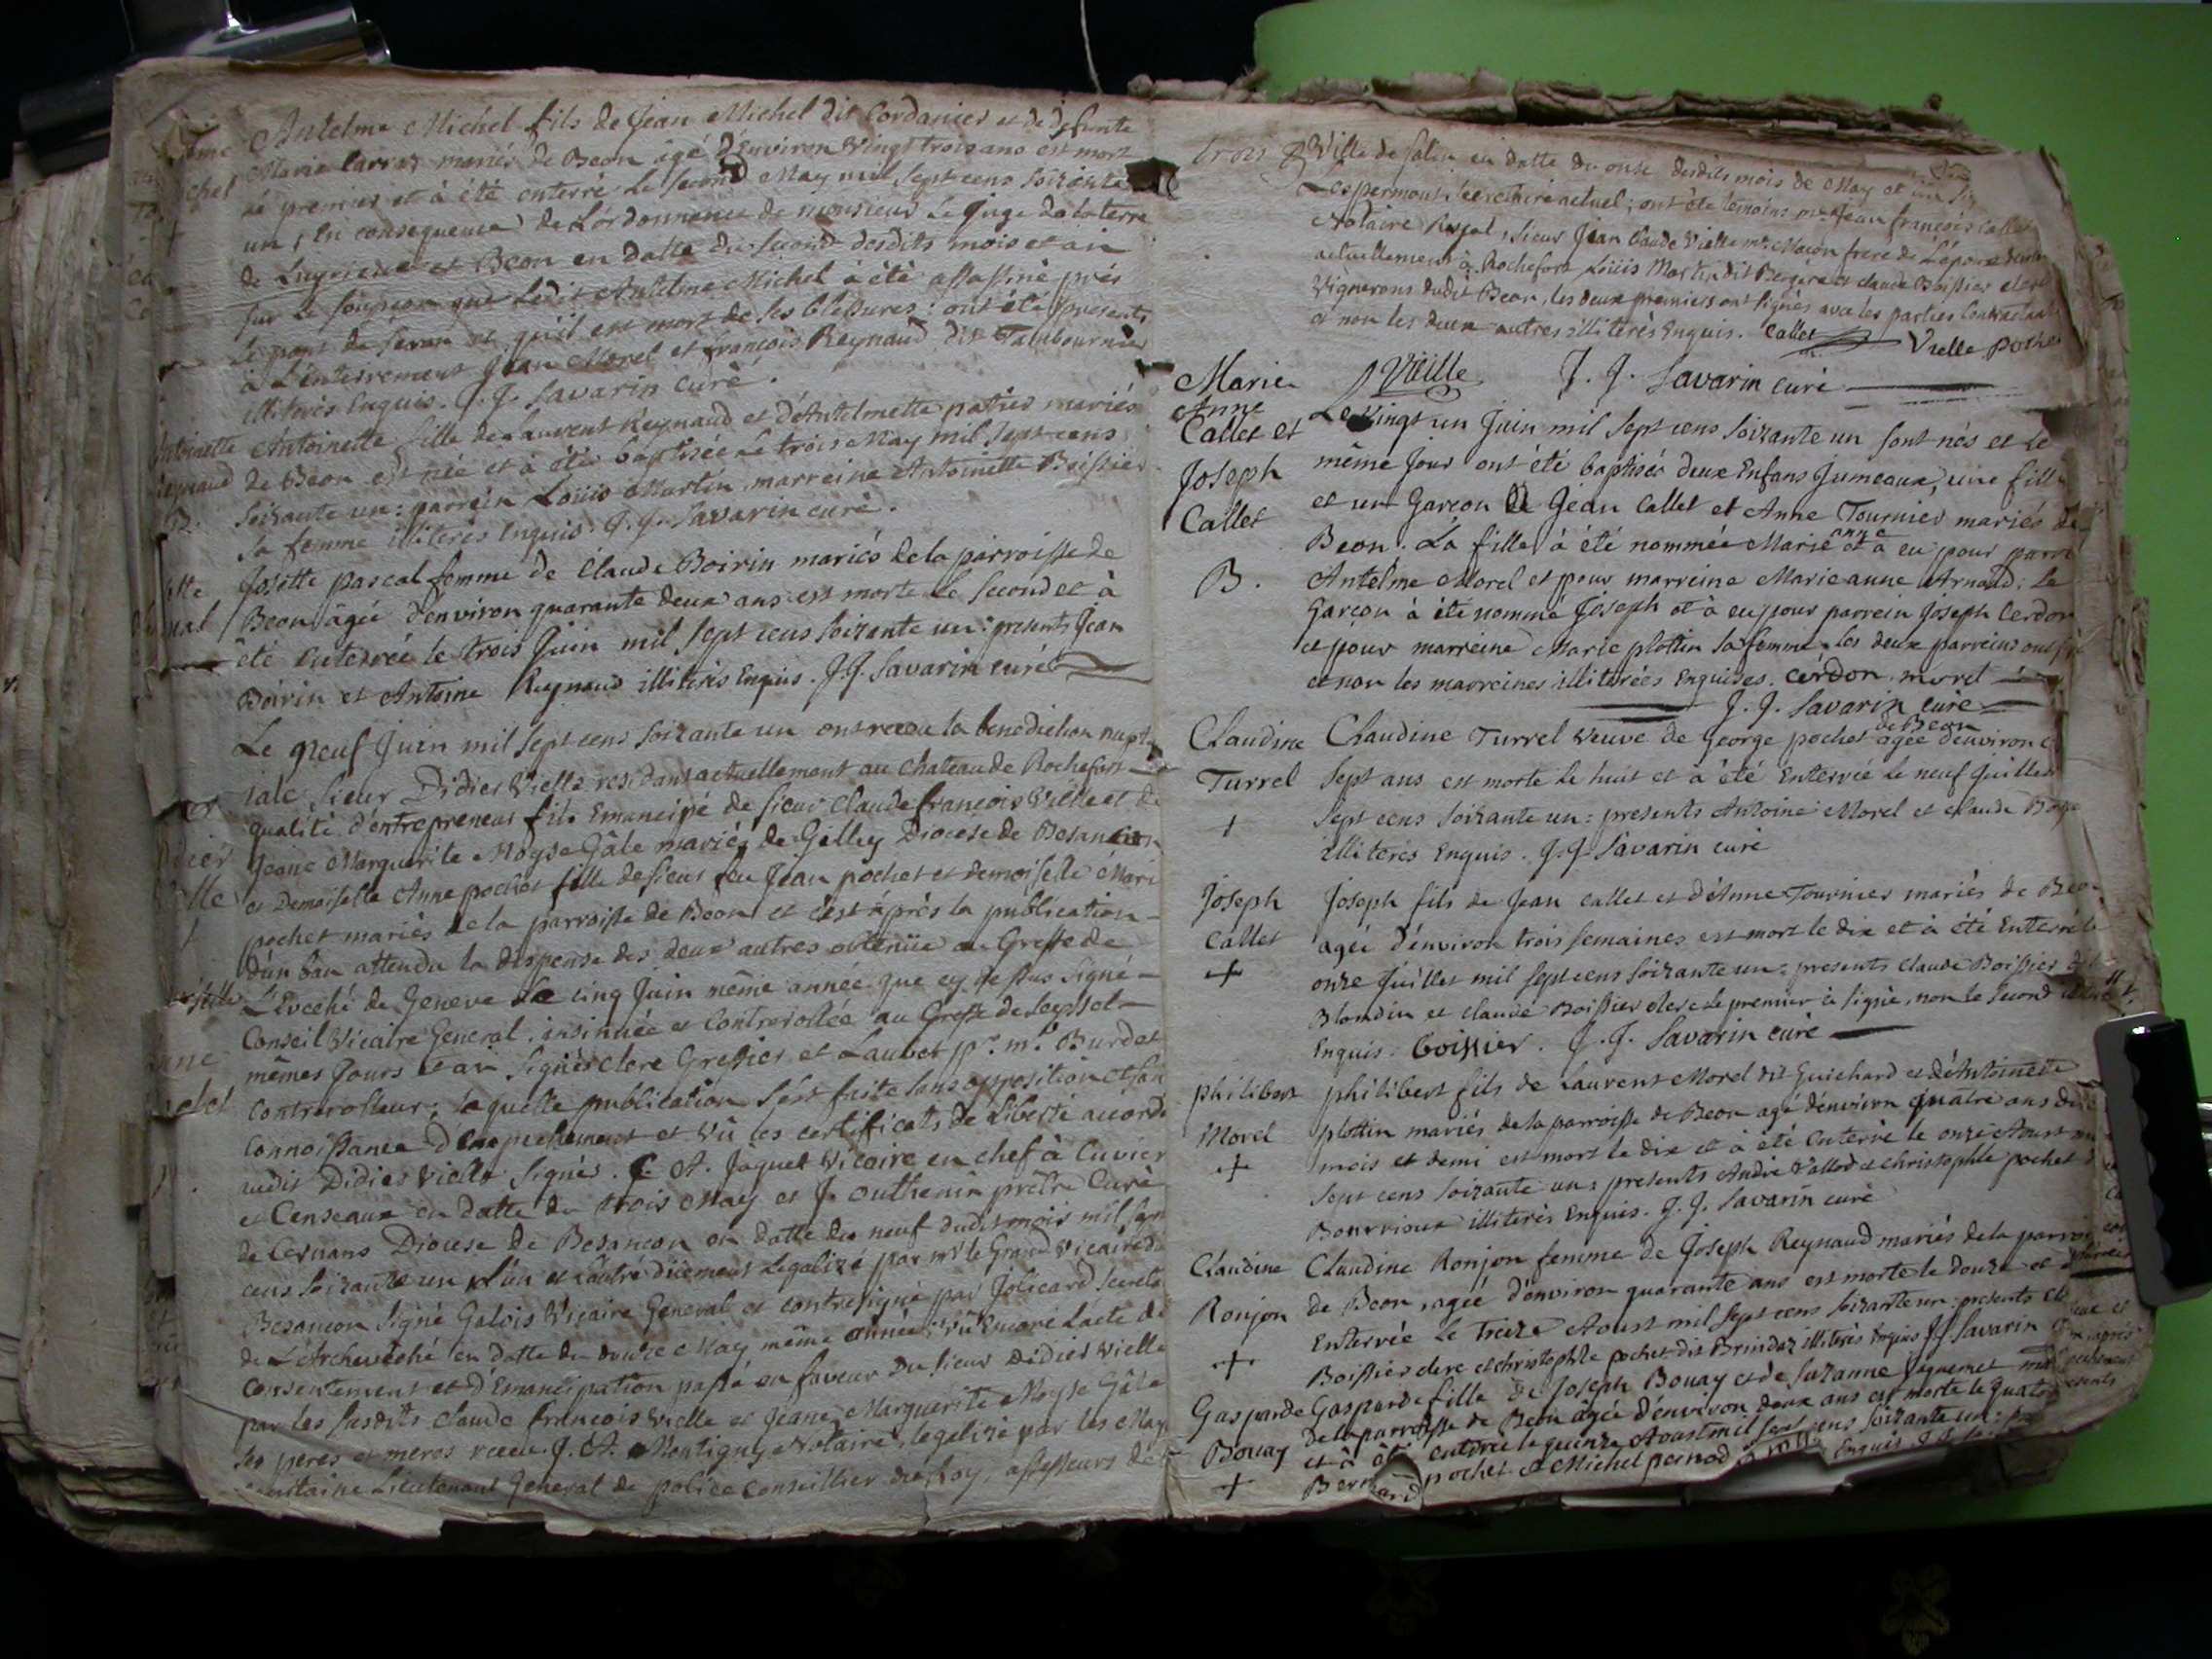 Antelme Michel fils de Jean Michel dit Cordanier et de defunte
Marie Carraz mariés de Beon âgé d'Environ Vingt trois ans est mort
le premier et à été enterré Le second May mil sept cens soixante
un, En consequence de L'ordonnance de monsieur Le Juge de la terre
de Luyrieux et Beon en datte du second desdits mois et an
sur le soupçon que Ledit Antelme Michel à été assassiné près
Le pont de Seran et qu'il est mort de ses blessures : ont été presents
à L'enterrement Jean Morel et François Reynaud dit Tambournier
illiterés Enquis. J. J. Savarin curé.
Antoinette
Reynaud
B.
Antoinette fille de Laurent Reynaud et d'Antelmette patier mariés
de Beon est née et à été baptisée Le trois May mil sept cens
soixante un : parrein Loüis Martin marreine Antoinette Boissier
sa femme illiterés Enquis. J. J. Savarin curé.
Josette pascal femme de Claude Boirin mariés de la parroisse de
Beon âgée d'environ quarante deux ans est morte Le second et à
été Enterrée le trois Juin mil sept cens soixante un : presents Jean
Boirin et Antoine Reynaud illiterés Enquis. J. J. Savarin curé
Le Neuf Juin mil sept cens soixante un ont receu la benediction nupt
iale sieur Didier Vielle residant actuellement au Chateau de Rochefort
qualité d'entrepreneur fils Emancipé de sieur Claude françois Vielle et de
Jeane Marguerite Moyse Gâle mariés de Gilley Diocese de Besançon
et Demoiselle Anne pochet fille de sieur feu Jean pochet et demoiselle Marie
pochet mariés de la parroisse de Beon et c'est après la publication
d'un ban attendu la dispense des deux autres obtenüe au Greffe de
L'Eveché de Geneve Le cinq Juin même année que cy dessus signé
Conseil Vicaire General, insinuée et Controrollée au Greffe de Seyssel
mêmes Jours et an Signés clerc Greffier et Laubet pr. mr. Burdet
Controrolleur ; laquelle publication s'est faite sans opposition et san
Connoissance d'Empechement et Vû les certificats de Liberté accordé
audit Didier Vielle signés. C. A. Jaquet Vicaire en chef à Cuvier
et Censeaux en datte du trois May et J. Outhenin prêtre Curé
de Cernans Diocese de Besancon en datte du neuf dudit mois mil sept
cens soixante un L'un et L'autre düement Legalizé par mr. le Grand Vicaire de
Besancon Signé Galois Vicaire General et contresigné par Jolicard Secreta
de L'Archeveché en datte du douze May même année Vû Encore L'acte de
consentement et d'Emancipation passé en faveur du sieur Didier Vielle
par les susdits Claude françois Vielle et Jeane Marguerite Moyse Gâle
ses peres et meres receu J. A. Montigny Notaire, legalizé par les May
Lieutenant General de police Conseillier du Roy, assesseurs de
Ville de Salin en datte du onze desdits mois de May et
Lespermont secretaire actuel ; ont été temoins mr. Jean françois Callet
Notaire Royal, sieur Jean Claude Vielle mr. Macon frere de L'epoux
actuellement à Rochefort Loüis Martin dit Bergere et claude Boissier clerc
Vignerons dudit Beon, les deux premiers ont signés avec les parties Contractant
et non les deux autres illiterés Enquis. Callet Vielle pochet
Vieille J. J. Savarin curé
Marie
Anne
Callet et
Joseph
Callet
B.
Le vingt un Juin mil sept cens soixante un sont nés et Le
même Jour ont été baptisés deux Enfans Jumeaux, une fille
et un Garcon de Jean Callet et Anne Tournier mariés de
Beon. La fille à été nommée Marie anne et à eu pour parre
Antelme Morel et pour marreine Marie anne Arnaud : Le
Garcon à été nommé Joseph et à eu pour parrein Joseph Cerdon
et pour marreine Marie plottin sa femme. Les deux parreins ont
et non les marreines illiterées Enquises. cérdon. morel
J. J. Savarin curé
Claudine
Turrel
+
Claudine Turrel veuve de George pochet de Beon agée d'environ
Sept ans est morte le huit et à été Enterrée Le neuf Juillet
Sept cens soixante un : presents Antoine Morel et Claude
illiterés Enquis. J. J. Savarin curé
Joseph
Callet
+
Joseph fils de Jean Callet et d'Anne Tournier mariés de Beo
agée d'environ trois semaines est mort le dix et à été Enterré Le
onze Juillet mil sept cens soixante un : presents Claude Boissier
Blondin et claude Boissier clerc le premier à signé, non le second
Enquis. Boissier. J. J. Savarin curé
philibert
Morel
+
philibert fils de Laurent Morel dit Guichard et d'Antoinete
plottin mariés de la parroisse de Beon agé d'environ quatre ans
mois et demi est mort le dix et à été Enterré le onze Aoust
sept cens soixante un : presents André Vallod et christophle pochet
Bourrioux illiterés Enquis. J. J. Savarin curé
Claudine
Ronjon
+
Claudine Ronjon femme de Joseph Reynaud mariés de la parroi
de Beon, agée d'environ quarante ans est morte le douze et
Enterrée Le treize Aoust mil sept cens soixante un : presents
Boissier clerc et christophle pochet dit Brindaz illiterés Enquis J J Savarin
Gasparde
Bouay
+
Gasparde fille de Joseph Bouay et de Suzanne Jaquemet
de la parroisse de Beon âgée d'environ deux ans est morte le quator
et à été enterrée le quinze Aoust mil sept cens soixante un :
Bernard pochet et Michel pernod Enquis